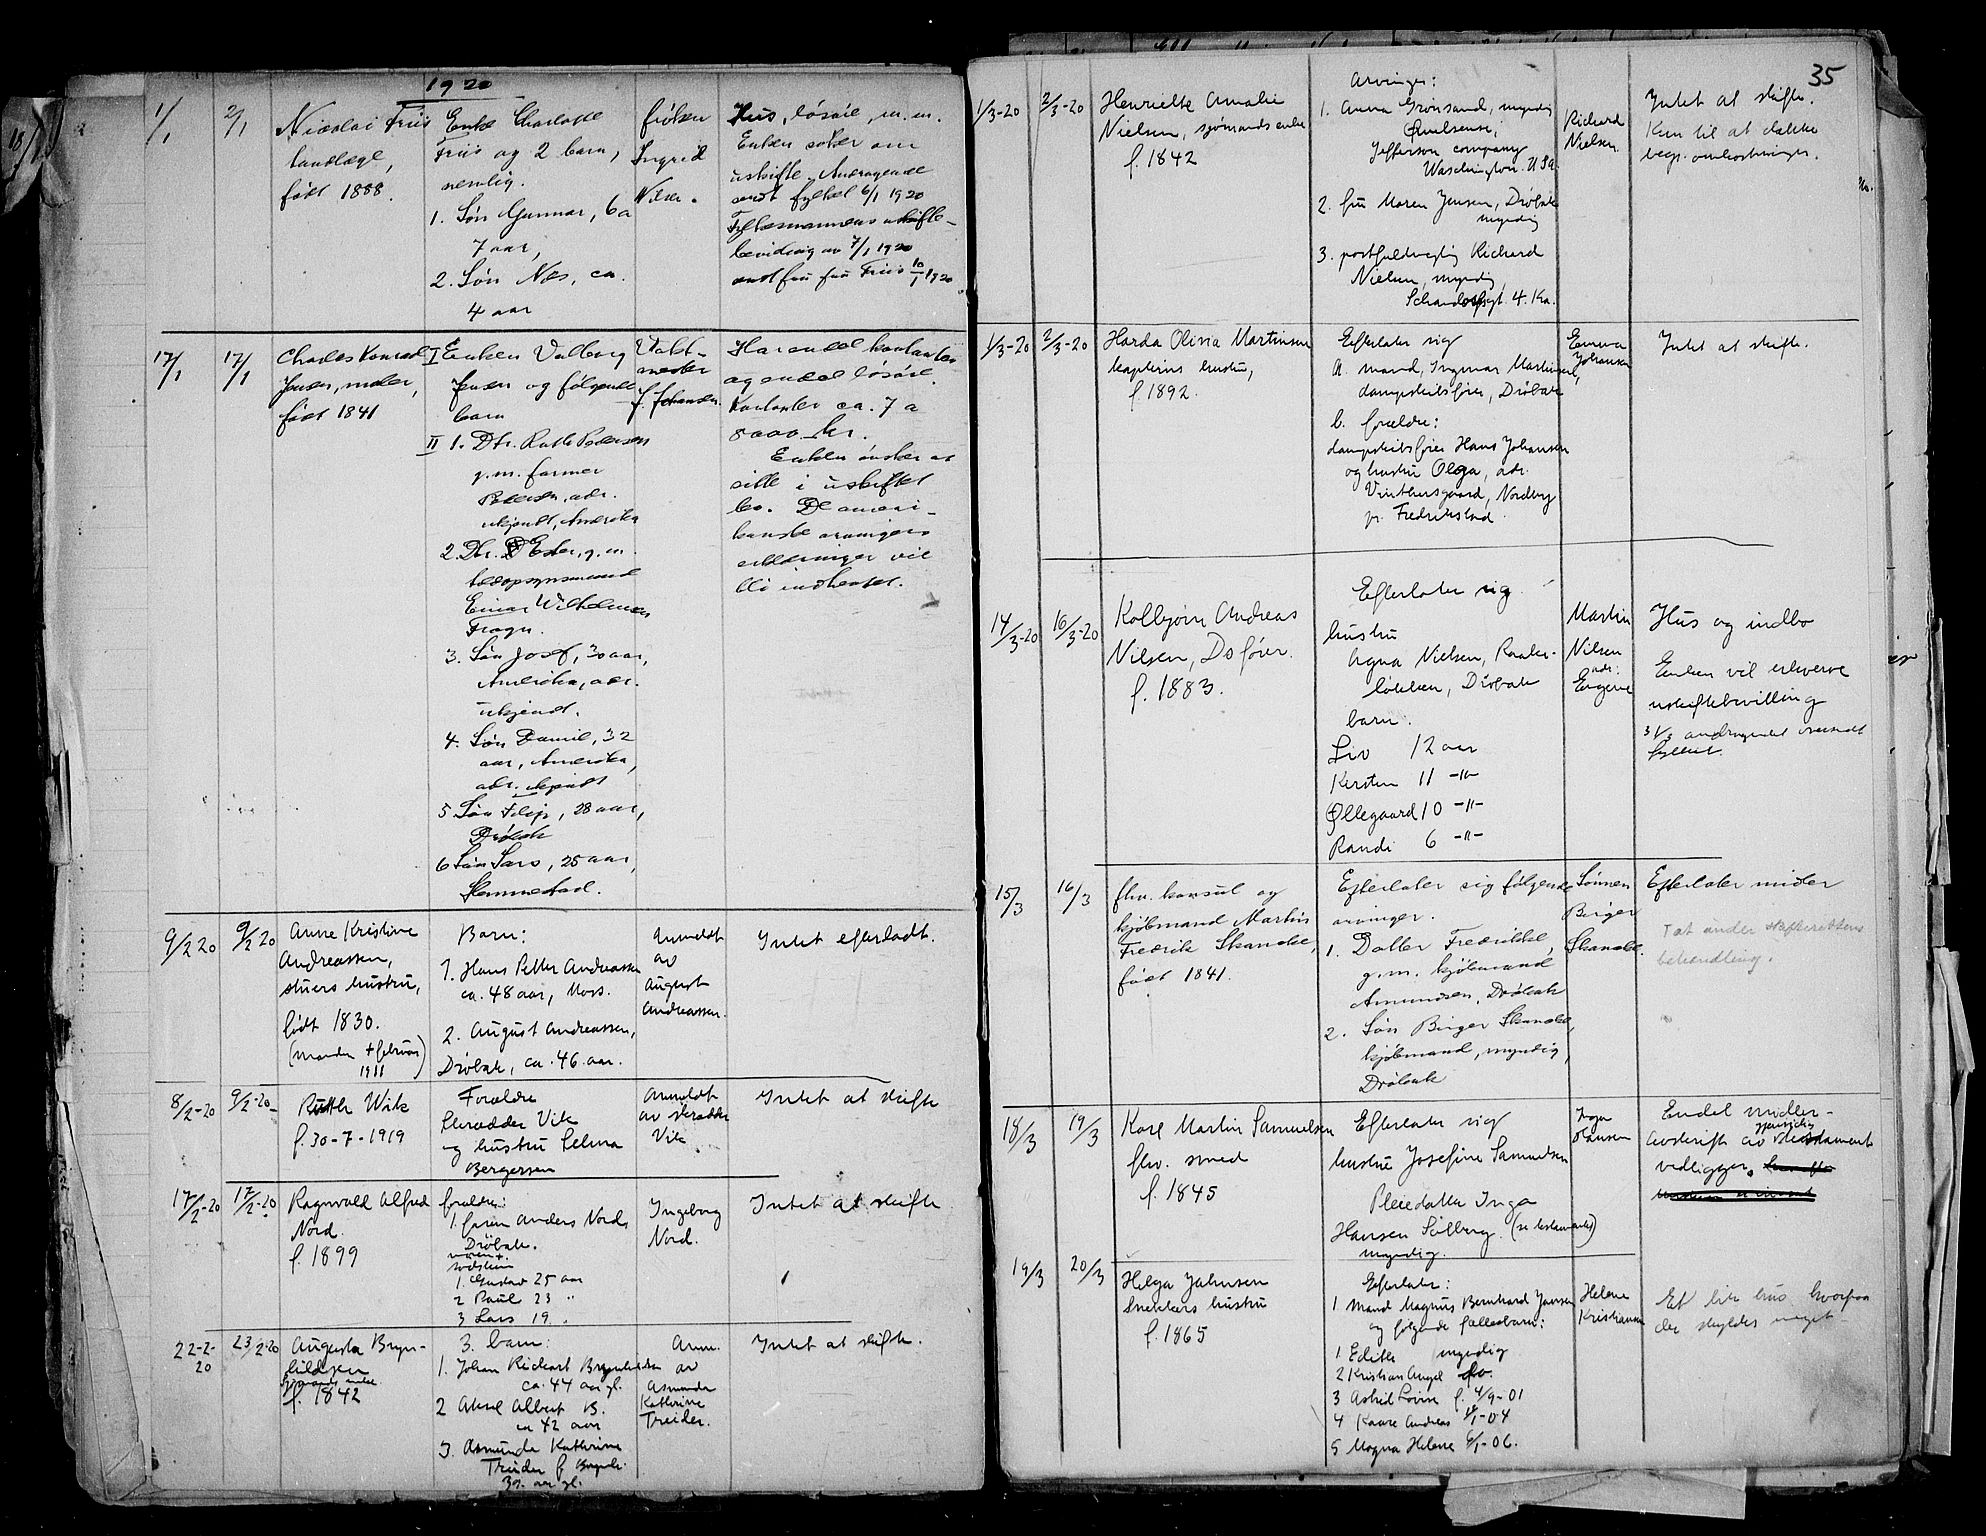 1920
1/1
2/1
Nicolai Friis
tandlæge,
født 1888.
Enke Charlotte
Friis og 2 barn,
nemlig.
1. Søn Gunnar, 6 a
7 aar,
2. Søn Nes, ca.
4 aar
frøken
Ingrid
Nilsen.
Hus, løsøre, m. m.
Enken søker om
uskifte. Andragende
sendt fylket 6/1 1920
Fylkesmannens uskifte-
bevilling av 7/1 1920
sendt fru Friis 10/1 1920.
17/1
17/1
Charles Konrad
Jensen, maler,
født 1841
I Enken Valborg
Jensen og følgende
barn
II 1. Dtr. Ruth Pedersen
g.m. farmer
Pedersen, adr.
ukjendt, Amerika
2. Dtr. Ester, g.m.
Einar Wilhelmsen
Frogn.
3. Søn Josef, 30 aar,
Amerika, adr.
ukjend.
4. Søn Daniel, 32
aar, Amerika,
adr. ukjendt
5 Søn Filip, 28 aar,
Drøbak
6 Søn Lars, 25 aar,
Slemmestad.
f. Johansen.
Har endel kontanter
og endel løsøre.
Kontanter ca. 7 a
8000 kr.
Enken ønsker at
sitte i uskiftet
bo. De ameri-
kanske arvingers
erklæringer vil
bli indhentet.
9/2 20
9/2 20
Anne Kristine
Andreassen,
stuers hustru,
født 1830.
(Manden + februar
1911)
Barn:
1. Hans Petter Andreassen
ca. 48 aar, Moss.
2. August Andreassen,
Drøbak, ca. 46 aar.
Anmeldt
av
August
Andreassen.
Intet efterladt.
8/2-20
9/2-20
Ruth Wik
f. 30-7-1919
Forældre
Skrædder Vik
og hustru Selma
Bergersen
Anmeldt
av skrædder
Vik
Intet at skifte
17/2-20
17/2-20
Ragnvald Alfred
Nord.
f. 1899
forældre:
1. faren Anders Nord,
Drøbak.
moren +.
søskken
1. Gustav 25 aar
2 Paul 23 "
3 Lars 19 "
Ingeborg
Nord.
Intet at skifte
22-2-
20
23/2-20
Augusta Bryn-
hildsen
sjømands enke
f. 1842
3. barn:
1. Johan Richart Brynhildsen
ca. 44 aar gl.
2 Aksel Albert B.
ca 42 aar
3. Asmunda Kathrine
Treider f. Brynh.
39. aar gl.
Anm.
av
Asmunda
Kathrine
Treider.
Intet at skifte.
35
1/3-20
2/3-20
Henriette Amalie
Nielsen, sjømands enke
f. 1842
Arvinger:
1. Anna Grønsand, myndig
Jefferson company
Waschington. U S a.
2. fru Maren Jensen, Drøbak
myndig
3. postfuldmægtig Richard
Nielsen, myndig,
Richard
Nielsen.
Intet at skifte.
Kun til at dække
begr. omkostninger.
1/3-20
2/3-20
Harda Olivia Martinsen
kapteins hustru,
f. 1892.
Efterlater sig
a. mand, Ingmar Martinsen,
dampskibsfører, Drøbak
b. forældre:
dampskibsfører Hans Johansen
og hustru Olga, adr.
Vinthersgaard, Nordby
pr. Fredrikstad.
Emma
Johansen
Intet at skifte.
14/3-20
16/3-20
Kolbjørn Andreas
Nilsen, Ds fører.
f. 1883.
Efterlater sig
hustru
Agna Nielsen, Raaker-
løkken, Drøbak
barn.
Liv 12 aar
Kirsten 11 -"-
Øllegaard 10 -"-
Randi 6 -"-
Martin
Nilsen
adr.
Engene
Hus og indbo
Enken vil erhverve
uskiftebevilling
31/3 andragendet oversendt
fylket.
15/3
16/3
fhv. konsul og
kjøbmand Martin
Fredrik Skanche,
født 1841.
Efterlater sig følgende
arvinger.
1. Datter Fredrikke,
g.m. kjøbmand
Amundsen, Drøbak
2. Søn Birger Skanche,
kjøbmand, myndig,
Drøbak
Sønnen
Birger
Skanche.
Efterlater midler
Tat under skifterettens
behandling.
18/3
19/3
Karl Martin Samuelsen
fhv. smed
f. 1845
Efterlater sig
hustru Josefine Samuelsen
Pleiedatter Inga
Hansen Solberg. (se testamentet)
myndig.
Inga
Hansen
Endel midler-
gjensidig
avskrift av testament
vedligger.
19/3
20/3
Helga Jahnsen
snekkers hustru
f. 1865
Efterlater:
1 Mand Magnus Bernhard Jansen
og følgende fællesbarn:
1 Edith myndig
2 Kristian Angel do.
3 Astrid Lovise f. 4/9-01
4 Kaare Andreas 18/1-04
5 Magna Helene 6/1-06.
Helene
Kristiansen
Et lite hus hvorpaa
der skyldes meget